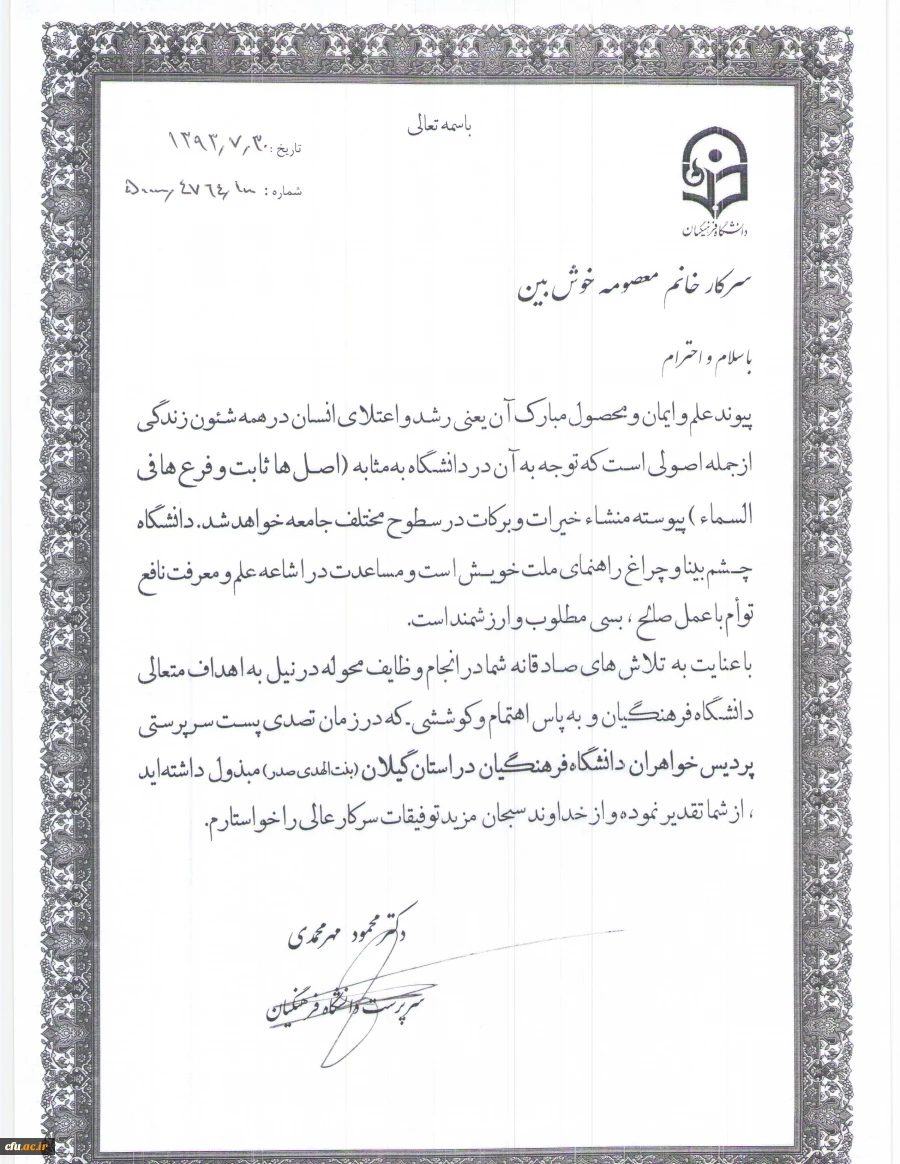 باسمه تعالی
تاریخ: ۱۳۹۳٫۷٫۳۰
شماره:
دانشگاه فرهنگیان
سرکار خانم معصومه خوش بین
باسلام و احترام
پیوند علم و ایمان و محصول مبارک آن یعنی رشد و اعتلای انسان در همه شئون زندگی
از جمله اصولی است که توجه به آن در دانشگاه به مثابه (اصل ها ثابت و فرع ها فی
السماء) پیوسته منشاء خیرات و برکات در سطوح مختلف جامعه خواهد شد. دانشگاه
چشم بینا و چراغ راهنمای ملت خویش است و مساعدت در اشاعه علم و معرفت نافع
توأم با عمل صالح ، بسی مطلوب و ارزشمند است.
با عنایت به تلاش های صادقانه شما در انجام وظایف محوله در نیل به اهداف متعالی
دانشگاه فرهنگیان و به پاس اهتمام و کوششی ـ که در زمان تصدی پست سرپرستی
پردیس خواهران دانشگاه فرهنگیان در استان گیلان (بنت الهدی صدر) مبذول داشته اید
، از شما تقدیر نموده و از خداوند سبحان مزید توفیقات سرکار عالی را خواستارم.
دکتر محمود مهرمحمدی
سرپرست دانشگاه فرهنگیان
cfu.ac.ir